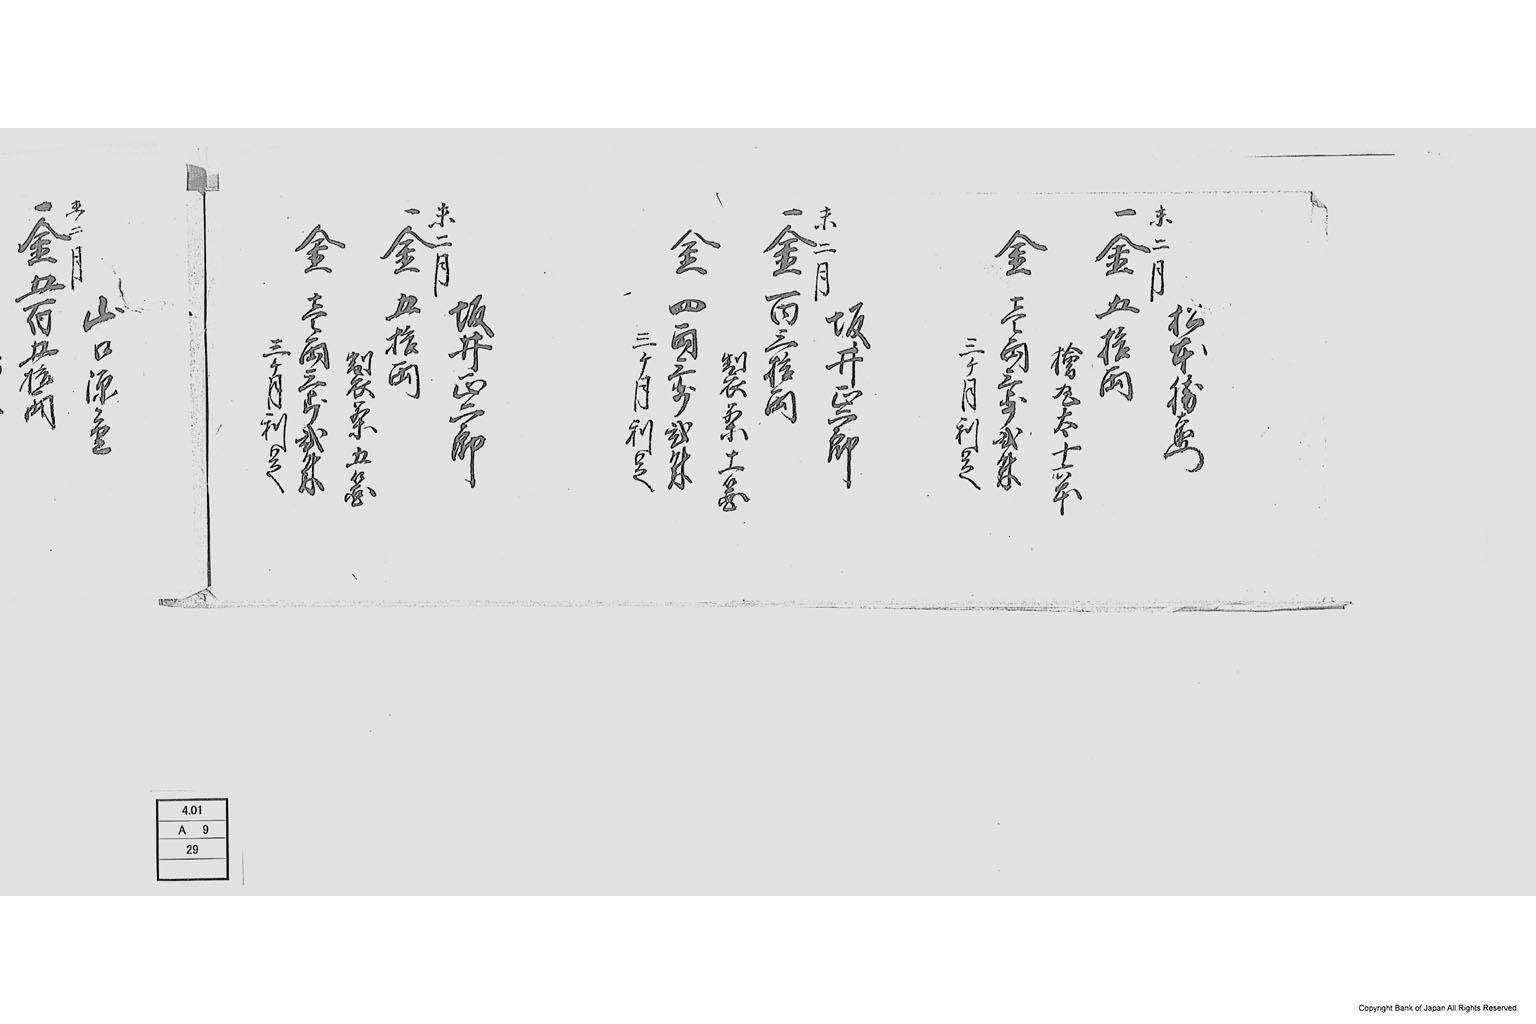 松本勝
未二月
一金五拾両
檜丸太十六本
金壱両三歩弐朱
三ケ月利足
坂井正三郎
未二月
一金百三拾両
製衣薬十箇
金四両三歩弐朱
三ケ月利足
坂井正三郎
未二月
一金五拾両
製衣薬五箇
金壱両三歩弐朱
三ケ月利足
山口源
未二月
一金五百五拾両
4.01
A 9
29
Copyright Bank of Japan All Rights Reserved.